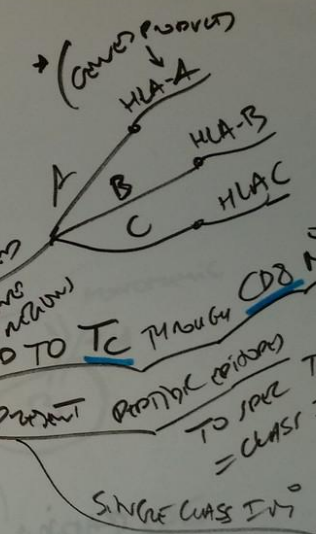 * (GENES PRODUCTS)
HLA-A
A
HLA-B
B
HLAC
C
D TO Tc THROUGH CD8
PEPTIDIC EPITOPES
TO SPEC T
= CLASS
SINGLE CLASS I